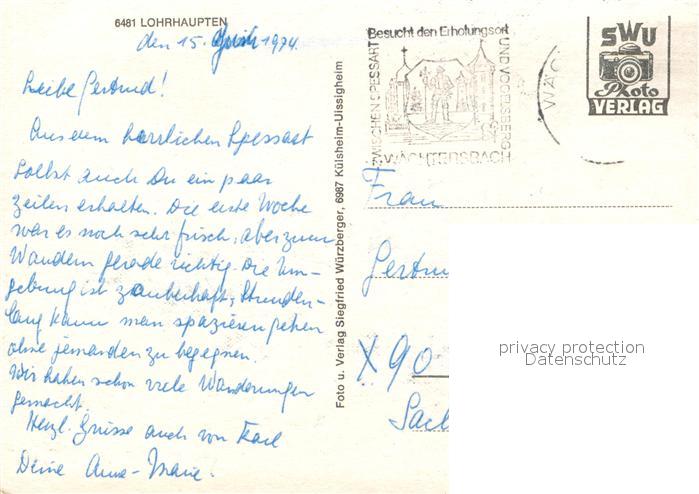 6481 LOHRHAUPTEN
den 15. Juni 1974.
Liebe Gertrud!
Aus dem herrlichen Spessart
sollst auch Du ein paar
Zeilen erhalten. Die erste Woche
war es noch sehr frisch, aber zum
Wandern gerade richtig. Die Um-
gebung ist zauberhaft, Stunden-
lang kann man spazieren gehen
ohne jemanden zu begegnen.
Wir haben schon viele Wanderungen
gemacht.
Herzl. Grüsse auch von Karl
Deine Anne-Marie.
Foto u. Verlag Siegfried Würzberger, 6987 Külsheim-Uissigheim
Besucht den Erholungsort
ZWISCHEN SPESSART
UND VOGELSBERG
WÄCHTERSBACH
WÄC
SWU
Photo
VERLAG
Frau
Gertru
X 90
privacy protection
Datenschutz